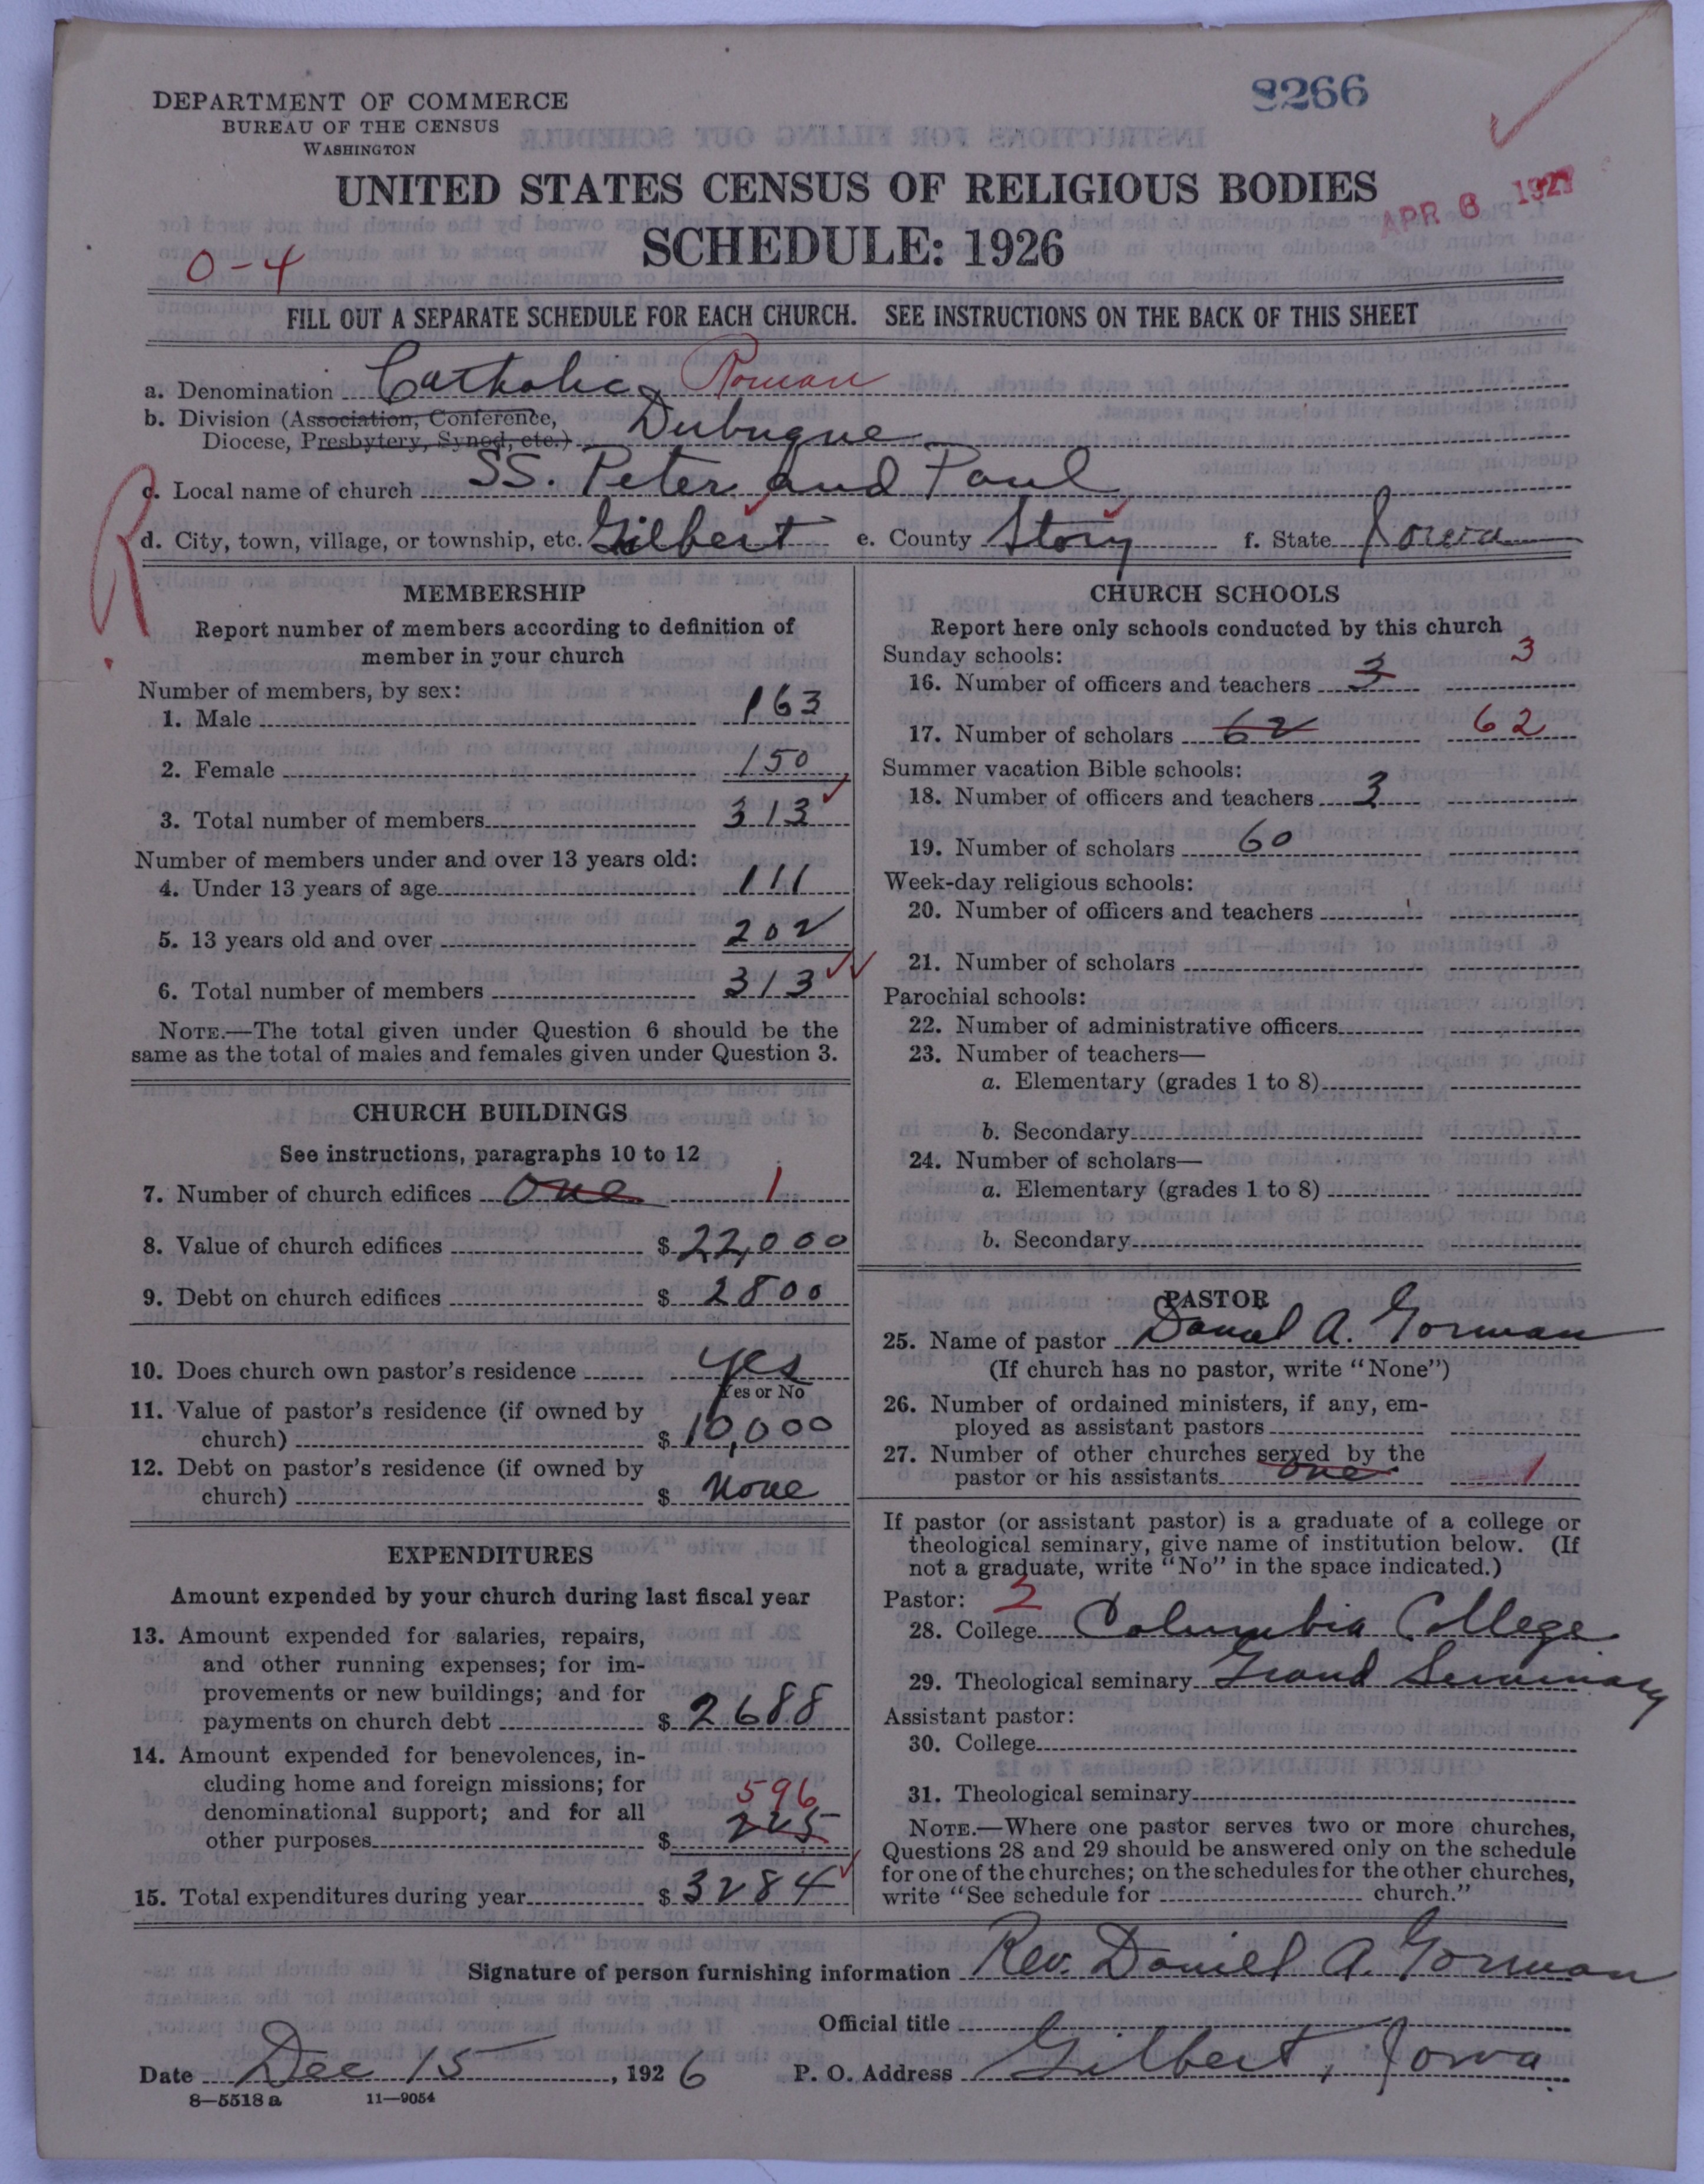 8266
DEPARTMENT OF COMMERCE
BUREAU OF THE CENSUS
WASHINGTON
UNITED STATES CENSUS OF RELIGIOUS BODIES
APR 6 1927
SCHEDULE: 1926
0-4
FILL OUT A SEPARATE SCHEDULE FOR EACH CHURCH. SEE INSTRUCTIONS ON THE BACK OF THIS SHEET
a. Denomination Catholic, Roman
b. Division (Association, Conference,
Diocese, Presbytery, Synod, etc.) Dubuque
c. Local name of church SS. Peter and Paul
d. City, town, village, or township, etc. Gilbert e. County Story f. State Iowa
R
MEMBERSHIP
Report number of members according to definition of
member in your church
Number of members, by sex:
1. Male 163
2. Female 150
3. Total number of members 313
Number of members under and over 13 years old:
4. Under 13 years of age 111
5. 13 years old and over 202
6. Total number of members 313
NOTE.—The total given under Question 6 should be the
same as the total of males and females given under Question 3.
CHURCH BUILDINGS
See instructions, paragraphs 10 to 12
7. Number of church edifices One 1
8. Value of church edifices $ 22,000
9. Debt on church edifices $ 2800
10. Does church own pastor's residence yes
Yes or No
11. Value of pastor's residence (if owned by
church) $ 10,000
12. Debt on pastor's residence (if owned by
church) $ None
EXPENDITURES
Amount expended by your church during last fiscal year
13. Amount expended for salaries, repairs,
and other running expenses; for im-
provements or new buildings; and for
payments on church debt $ 2688
14. Amount expended for benevolences, in-
cluding home and foreign missions; for
denominational support; and for all 596
other purposes $ 225
15. Total expenditures during year $ 3284
CHURCH SCHOOLS
Report here only schools conducted by this church
Sunday schools:
16. Number of officers and teachers 3 3
17. Number of scholars 62 62
Summer vacation Bible schools:
18. Number of officers and teachers 3
19. Number of scholars 60
Week-day religious schools:
20. Number of officers and teachers
21. Number of scholars
Parochial schools:
22. Number of administrative officers
23. Number of teachers—
a. Elementary (grades 1 to 8)
b. Secondary
24. Number of scholars—
a. Elementary (grades 1 to 8)
b. Secondary
PASTOR
25. Name of pastor Daniel A. Gorman
(If church has no pastor, write "None")
26. Number of ordained ministers, if any, em-
ployed as assistant pastors
27. Number of other churches served by the
pastor or his assistants one 1
If pastor (or assistant pastor) is a graduate of a college or
theological seminary, give name of institution below. (If
not a graduate, write "No" in the space indicated.)
Pastor: 3
28. College Columbia College
29. Theological seminary Grand Seminary
Assistant pastor:
30. College
31. Theological seminary
NOTE.—Where one pastor serves two or more churches,
Questions 28 and 29 should be answered only on the schedule
for one of the churches; on the schedules for the other churches,
write "See schedule for church."
Signature of person furnishing information Rev. Daniel A. Gorman
Official title
Date Dec 15, 1926 P. O. Address Gilbert, Iowa
8—5518 a 11—9054